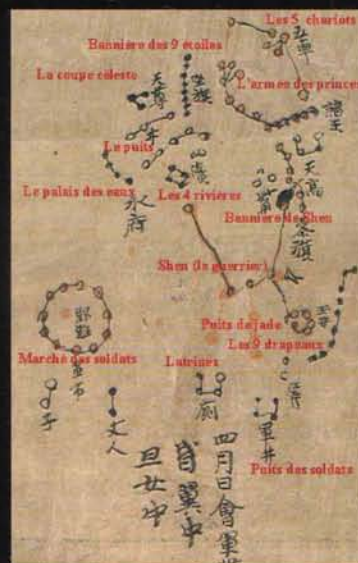 Les 5 chariots
五車
Bannière des 9 étoiles
La coupe céleste
L'armée des princes
諸王
Le puits
井
天高
Le palais des eaux
Les 4 rivières
Bannière de Shen
參旗
Shen (le guerrier)
Puits de jade
Les 9 drapeaux
Marché des soldats
Latrines
野雞
軍市
廁
子
丈人
軍井
Puits des soldats
四月日會軍
昏翼中
旦女中